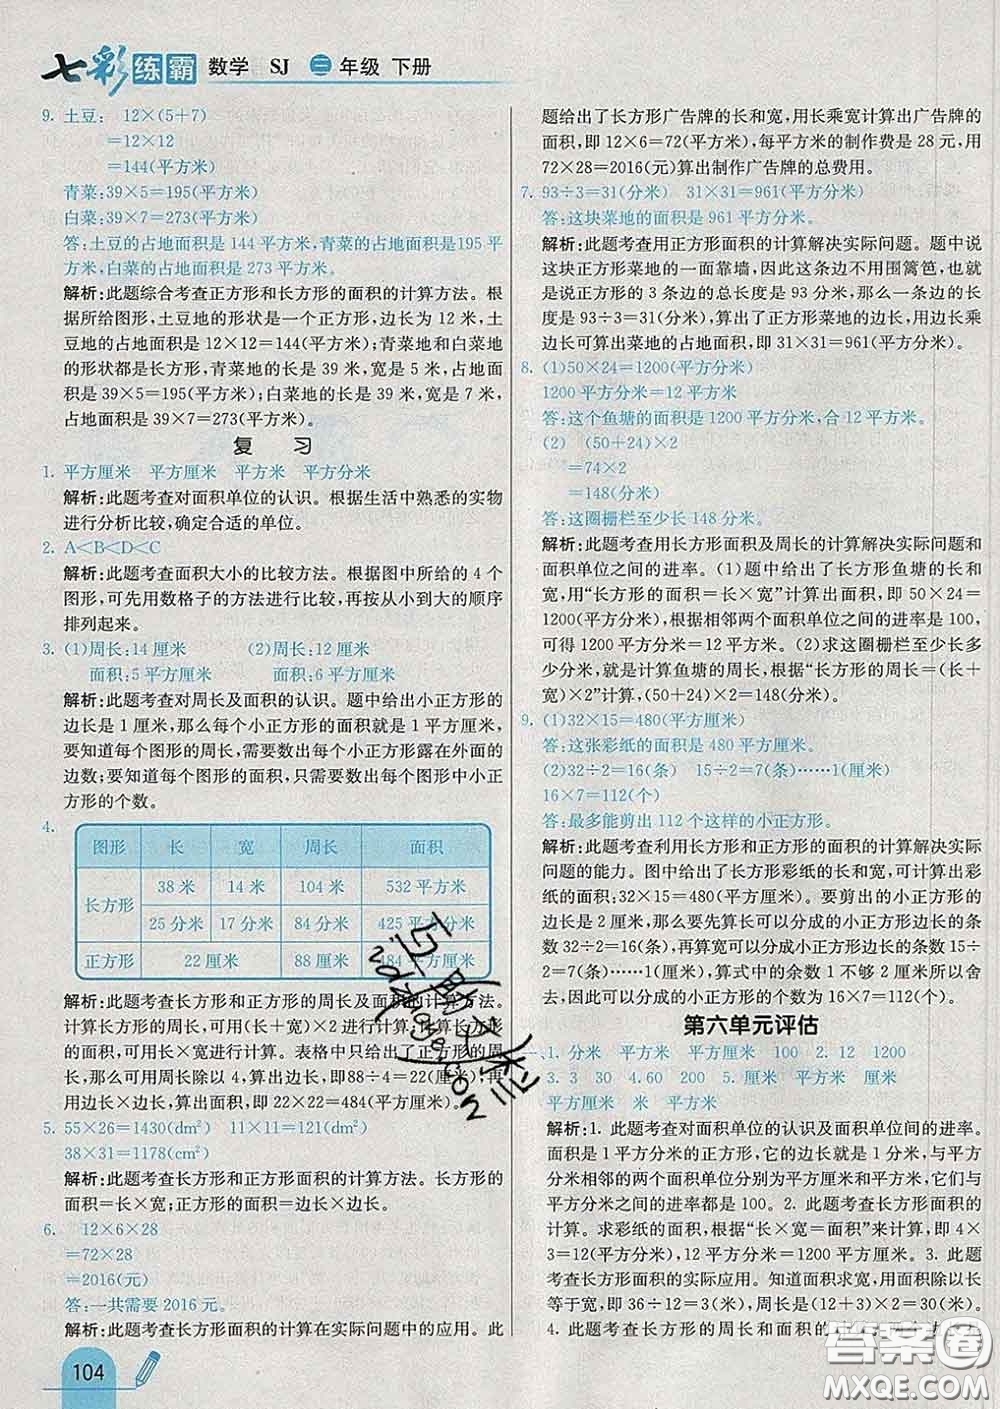 七彩练霸 数学 SJ 三年级 下册
9. 土豆: 12×(5+7)
=12×12
=144(平方米)
青菜:39×5=195(平方米)
白菜:39×7=273(平方米)
答:土豆的占地面积是 144 平方米,青菜的占地面积是195 平方米,白菜的占地面积是 273 平方米。
解析:此题综合考查正方形和长方形的面积的计算方法。根据所给图形,土豆地的形状是一个正方形,边长为 12 米,土豆的占地面积是 12×12=144(平方米);青菜地和白菜地的形状都是长方形,青菜地的长是 39 米,宽是 5 米,占地面积是 39×5=195(平方米);白菜地的长是 39 米,宽是 7 米,占地面积是 39×7=273(平方米)。
复 习
1. 平方厘米 平方厘米 平方米 平方分米
解析:此题考查对面积单位的认识。根据生活中熟悉的实物进行分析比较,确定合适的单位。
2. A<B<D<C
解析:此题考查面积大小的比较方法。根据图中所给的 4 个图形,可先用数格子的方法进行比较,再按从小到大的顺序排列起来。
3. (1)周长:14 厘米 (2)周长:12 厘米
面积:5 平方厘米 面积:6 平方厘米
解析:此题考查对周长及面积的认识。题中给出小正方形的边长是 1 厘米,那么每个小正方形的面积就是 1 平方厘米,要知道每个图形的周长,需要数出每个小正方形露在外面的边数;要知道每个图形的面积,只需要数出每个图形中小正方形的个数。
4.
图形 长 宽 周长 面积
长方形 38 米 14 米 104 米 532 平方米
25 分米 17 分米 84 分米 425 平方分米
正方形 22 厘米 88 厘米 484 平方厘米
解析:此题考查长方形和正方形的周长及面积的计算方法。计算长方形的周长,可用(长+宽)×2 进行计算,计算长方形的面积,可用长×宽进行计算。表格中只给出了正方形的周长,可先用周长除以 4,算出边长,即88÷4=22(厘米);再用边长×边长,算出面积,即 22×22=484(平方厘米)。
5. 55×26=1430(dm²) 11×11=121(dm²)
38×31=1178(cm²)
解析:此题考查长方形和正方形面积的计算方法。长方形的面积=长×宽;正方形的面积=边长×边长。
6. 12×6×28
=72×28
=2016(元)
答:一共需要 2016 元。
解析:此题考查长方形面积的计算在实际问题中的应用。此
104
题给出了长方形广告牌的长和宽,用长乘宽计算出广告牌的面积,即 12×6=72(平方米),每平方米的制作费是 28 元,用 72×28=2016(元)算出制作广告牌的总费用。
7. 93÷3=31(分米) 31×31=961(平方分米)
答:这块菜地的面积是 961 平方分米。
解析:此题考查用正方形面积的计算解决实际问题。题中说这块正方形菜地的一面靠墙,因此这条边不用围篱笆,也就是说正方形的 3 条边的总长度是 93 分米,那么一条边的长度是 93÷3=31(分米),算出了正方形菜地的边长,用边长乘边长可算出菜地的占地面积,即 31×31=961(平方分米)。
8. (1)50×24=1200(平方分米)
1200 平方分米=12 平方米
答:这个鱼塘的面积是 1200 平方分米,合 12 平方米。
(2) (50+24)×2
=74×2
=148(分米)
答:这圈栅栏至少长 148 分米。
解析:此题考查用长方形面积及周长的计算解决实际问题和面积单位之间的进率。(1)题中给出了长方形鱼塘的长和宽,用“长方形的面积=长×宽”计算出面积,即 50×24=1200(平方分米),根据相邻两个面积单位之间的进率是 100,可得 1200 平方分米=12 平方米。(2)求这圈栅栏至少长多少分米,就是计算鱼塘的周长,根据“长方形的周长=(长+宽)×2”计算,(50+24)×2=148(分米)。
9. (1)32×15=480(平方厘米)
答:这张彩纸的面积是 480 平方厘米。
(2)32÷2=16(条) 15÷2=7(条)……1(厘米)
16×7=112(个)
答:最多能剪出 112 个这样的小正方形。
解析:此题考查利用长方形和正方形的面积的计算解决实际问题的能力。图中给出了长方形彩纸的长和宽,可计算出彩纸的面积:32×15=480(平方厘米)。要剪出的小正方形的边长是 2 厘米,那么要先算长可以分成的小正方形边长的条数 32÷2=16(条),再算宽可以分成小正方形边长的条数 15÷2=7(条)……1(厘米),算式中的余数 1 不够 2 厘米所以舍去,因此可以分成的小正方形的个数为 16×7=112(个)。
第六单元评估
一、1. 分米 平方米 平方厘米 100 2. 12 1200
3. 3 30 4. 60 200 5. 厘米 平方米 厘米
平方厘米 米 平方米
解析:1. 此题考查对面积单位的认识及面积单位间的进率。面积是 1 平方分米的正方形,它的边长就是 1 分米,与平方分米相邻的两个面积单位分别为平方厘米和平方米,它们与平方分米之间的进率都是 100。2. 此题考查长方形面积的计算。求彩纸的面积,根据“长×宽=面积”来计算,即 4×3=12(平方分米),12 平方分米=1200 平方厘米。3. 此题考查长方形面积的实际应用。知道面积求宽,用面积除以长等于宽,即 36÷12=3(米),周长是(12+3)×2=30(米)。
4. 此题考查长方形的周长和面积的
答案圈
MXQE.COM